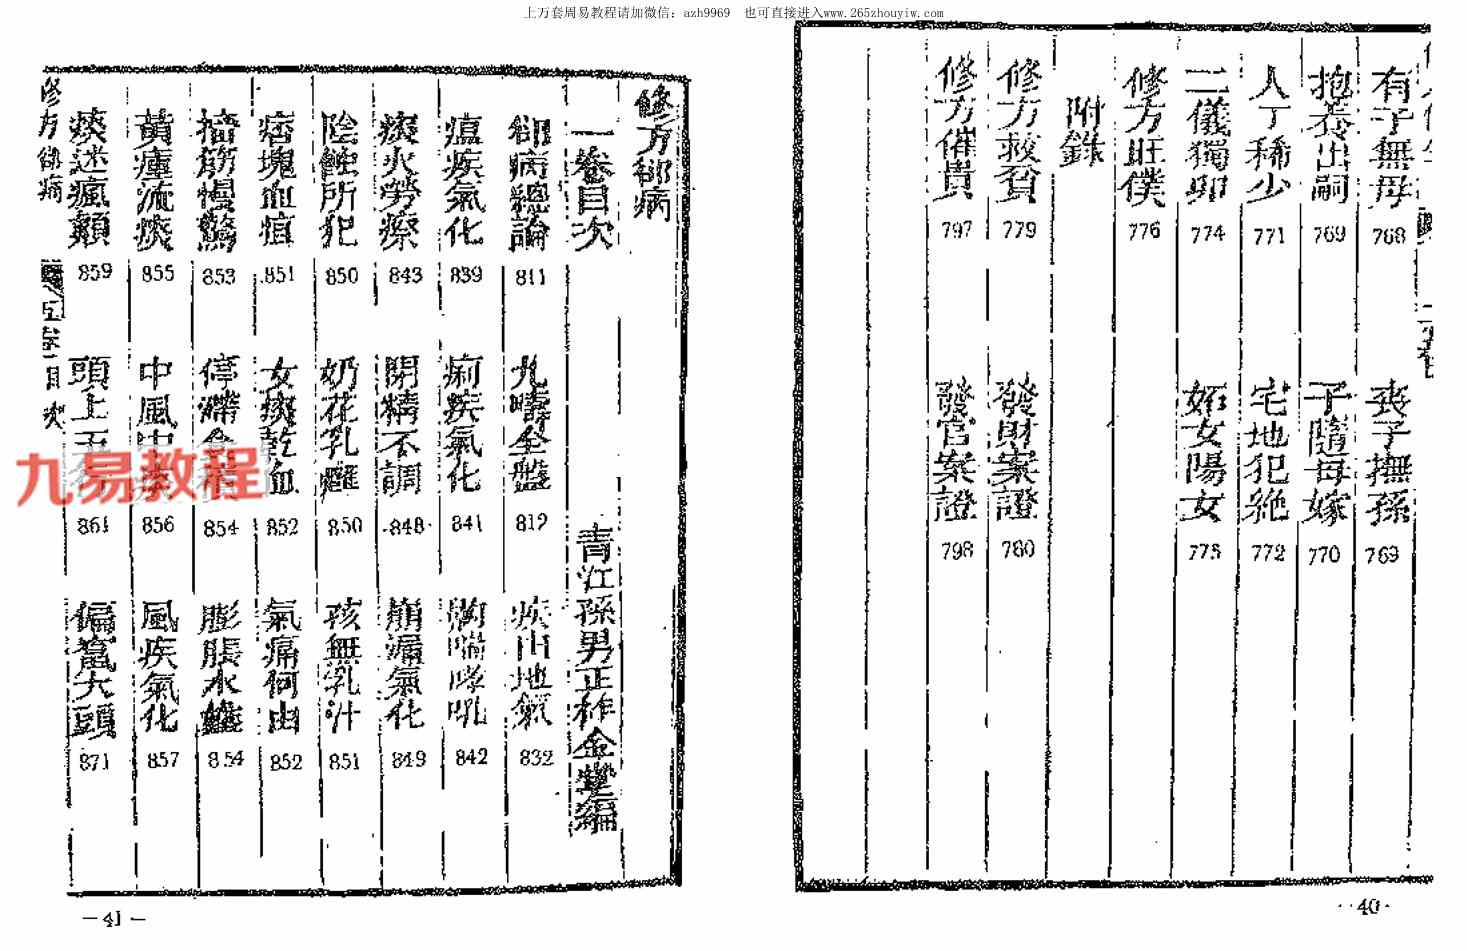 上万套周易教程请加微信：azh9969 也可直接进入www.265zhouyiw.com
有子無母 768 喪子撫孫 769
抱養出嗣 769 子隨母嫁 770
人丁稀少 771 宅地犯絶 772
二儀獨卵 774 妬女陽女 775
修方旺僕 776
附錄
修方救貧 779 發財案證 780
修方催貴 797 發官案證 798
40
修方卻病
一卷目次 青江孫男正柞金 編
卻病總論 811 九疇全盤 819 疾由地氣 832
瘟疾氣化 839 痢疾氣化 841 胸喘哮吼 842
痰火勞瘵 843 閉精不調 848 崩漏氣化 849
陰蝕所犯 850 奶花乳癰 850 孩無乳汁 851
痞塊血疽 851 女痰乾血 852 氣痛何由 852
搐筋慢驚 853 停滯 854 膨脹水 854
黃瘇流痰 855 中風中痰 856 風疾氣化 857
痰迷瘋顛 859 頭上 861 偏 大頭 871
修方卻病 五卷一目次
九易教程
— 41 —